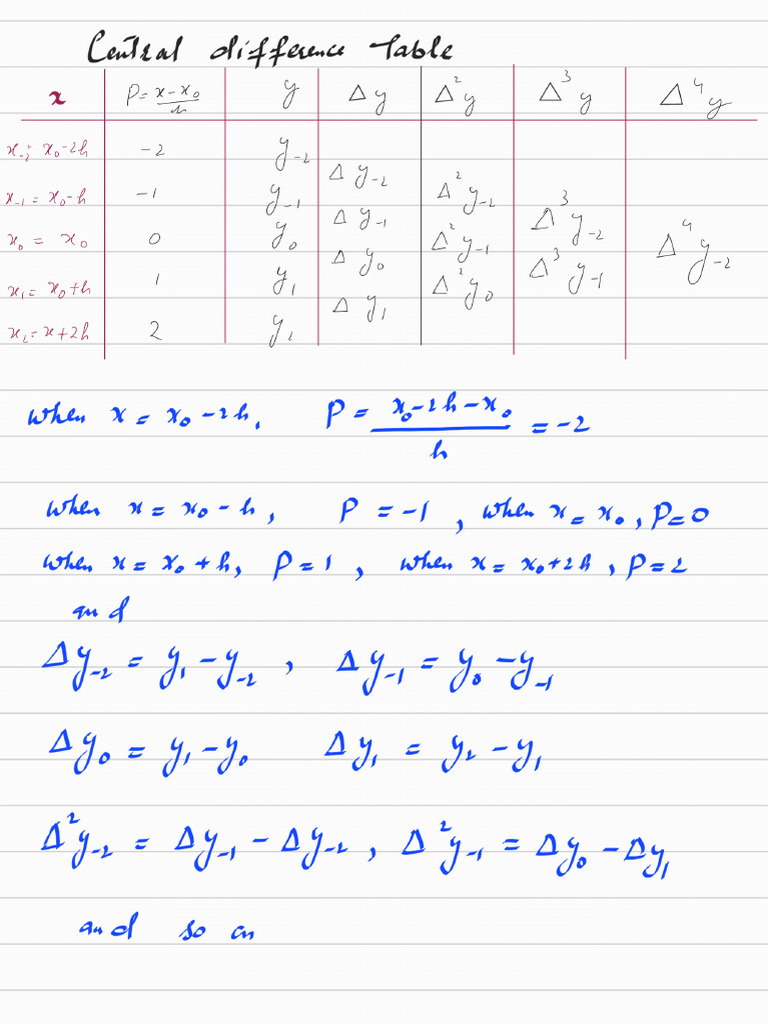 Central difference Table
x P = x-x₀/h y Δy Δ²y Δ³y Δ⁴y
x₋₂= x₀-2h -2 y₋₂
Δy₋₂
x₋₁ = x₀-h -1 y₋₁ Δ²y₋₂
Δy₋₁ Δ³y₋₂
x₀ = x₀ 0 y₀ Δ²y₋₁ Δ⁴y₋₂
Δy₀ Δ³y₋₁
x₁= x₀+h 1 y₁ Δ²y₀
Δy₁
x₂= x+2h 2 y₂
when x = x₀-2h, P = x₀-2h-x₀/h = -2
when x = x₀-h, P = -1, when x = x₀, P=0
when x = x₀+h, P=1, when x = x₀+2h, P=2
and
Δy₋₂ = y₁-y₋₂, Δy₋₁ = y₀-y₋₁
Δy₀ = y₁-y₀ Δy₁ = y₂-y₁
Δ²y₋₂ = Δy₋₁ - Δy₋₂, Δ²y₋₁ = Δy₀ - Δy₁
and so on